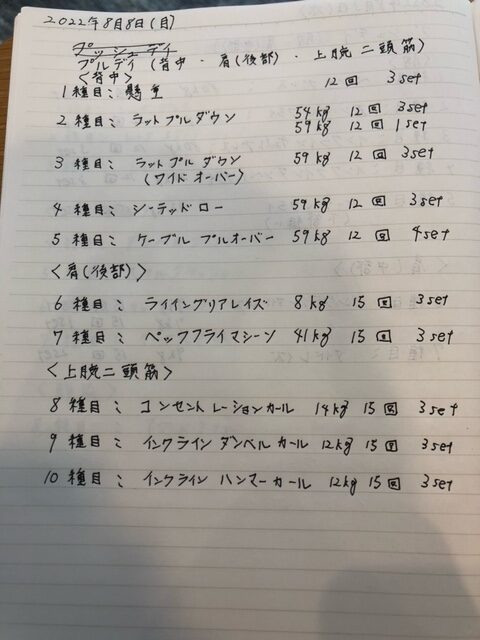 2022年8月8日(月)
プッシュデイ
プルデイ (背中・肩(後部)・上腕二頭筋)
<背中>
1種目: 懸垂 12回 3set
2種目: ラットプルダウン 54kg 12回 3set
59kg 12回 1set
3種目: ラットプルダウン 59kg 12回 3set
(ワイドオーバー)
4種目: シーテッドロー 59kg 12回 3set
5種目: ケーブルプルオーバー 59kg 12回 4set
<肩(後部)>
6種目: ライイングリアレイズ 8kg 15回 3set
7種目: ペックフライマシーン 41kg 15回 3set
<上腕二頭筋>
8種目: コンセントレーションカール 14kg 15回 3set
9種目: インクラインダンベルカール 12kg 15回 3set
10種目: インクラインハンマーカール 12kg 15回 3set